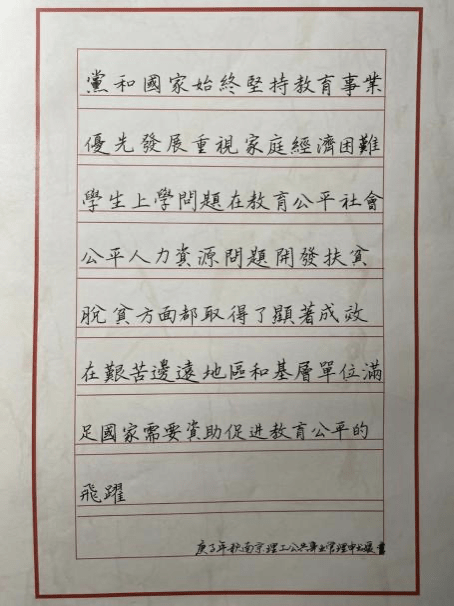 黨和國家始終堅持教育事業
優先發展重視家庭經濟困難
學生上學問題在教育公平社會
公平人力資源問題開發扶貧
脫貧方面都取得了顯著成效
在艱苦邊遠地區和基層單位滿
足國家需要資助促进教育公平的
飛躍
庚子年秋南京理工公共事业管理申